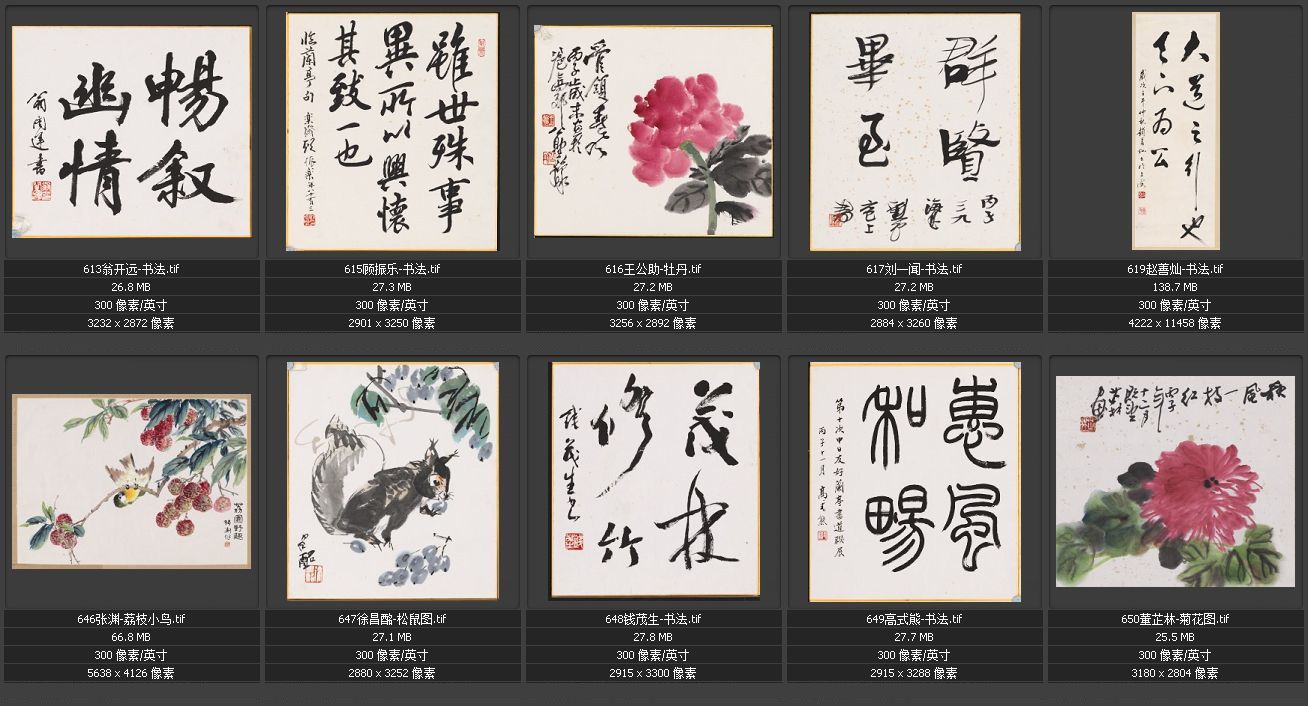 暢叙
幽情
翁闿運書
雖世殊事
異所以興懷
其致一也
臨蘭亭句
群賢
畢至
丙子
大道之行也
天下為公
613翁开远-书法.tif
26.8 MB
300 像素/英寸
3232 x 2872 像素
615顾振乐-书法.tif
27.3 MB
300 像素/英寸
2901 x 3250 像素
616王公助-牡丹.tif
27.2 MB
300 像素/英寸
3256 x 2892 像素
617刘一闻-书法.tif
27.2 MB
300 像素/英寸
2884 x 3260 像素
619赵善灿-书法.tif
138.7 MB
300 像素/英寸
4222 x 11458 像素
荔園野趣
茂林
修竹
錢茂生書
惠風
和暢
第十次中日友好蘭亭書道聯展
丙子十一月
高式熊
秋風一枝紅
646张渊-荔枝小鸟.tif
66.8 MB
300 像素/英寸
5638 x 4126 像素
647徐昌酩-松鼠图.tif
27.1 MB
300 像素/英寸
2880 x 3252 像素
648钱茂生-书法.tif
27.8 MB
300 像素/英寸
2915 x 3300 像素
649高式熊-书法.tif
27.7 MB
300 像素/英寸
2915 x 3288 像素
650董芷林-菊花图.tif
25.5 MB
300 像素/英寸
3180 x 2804 像素